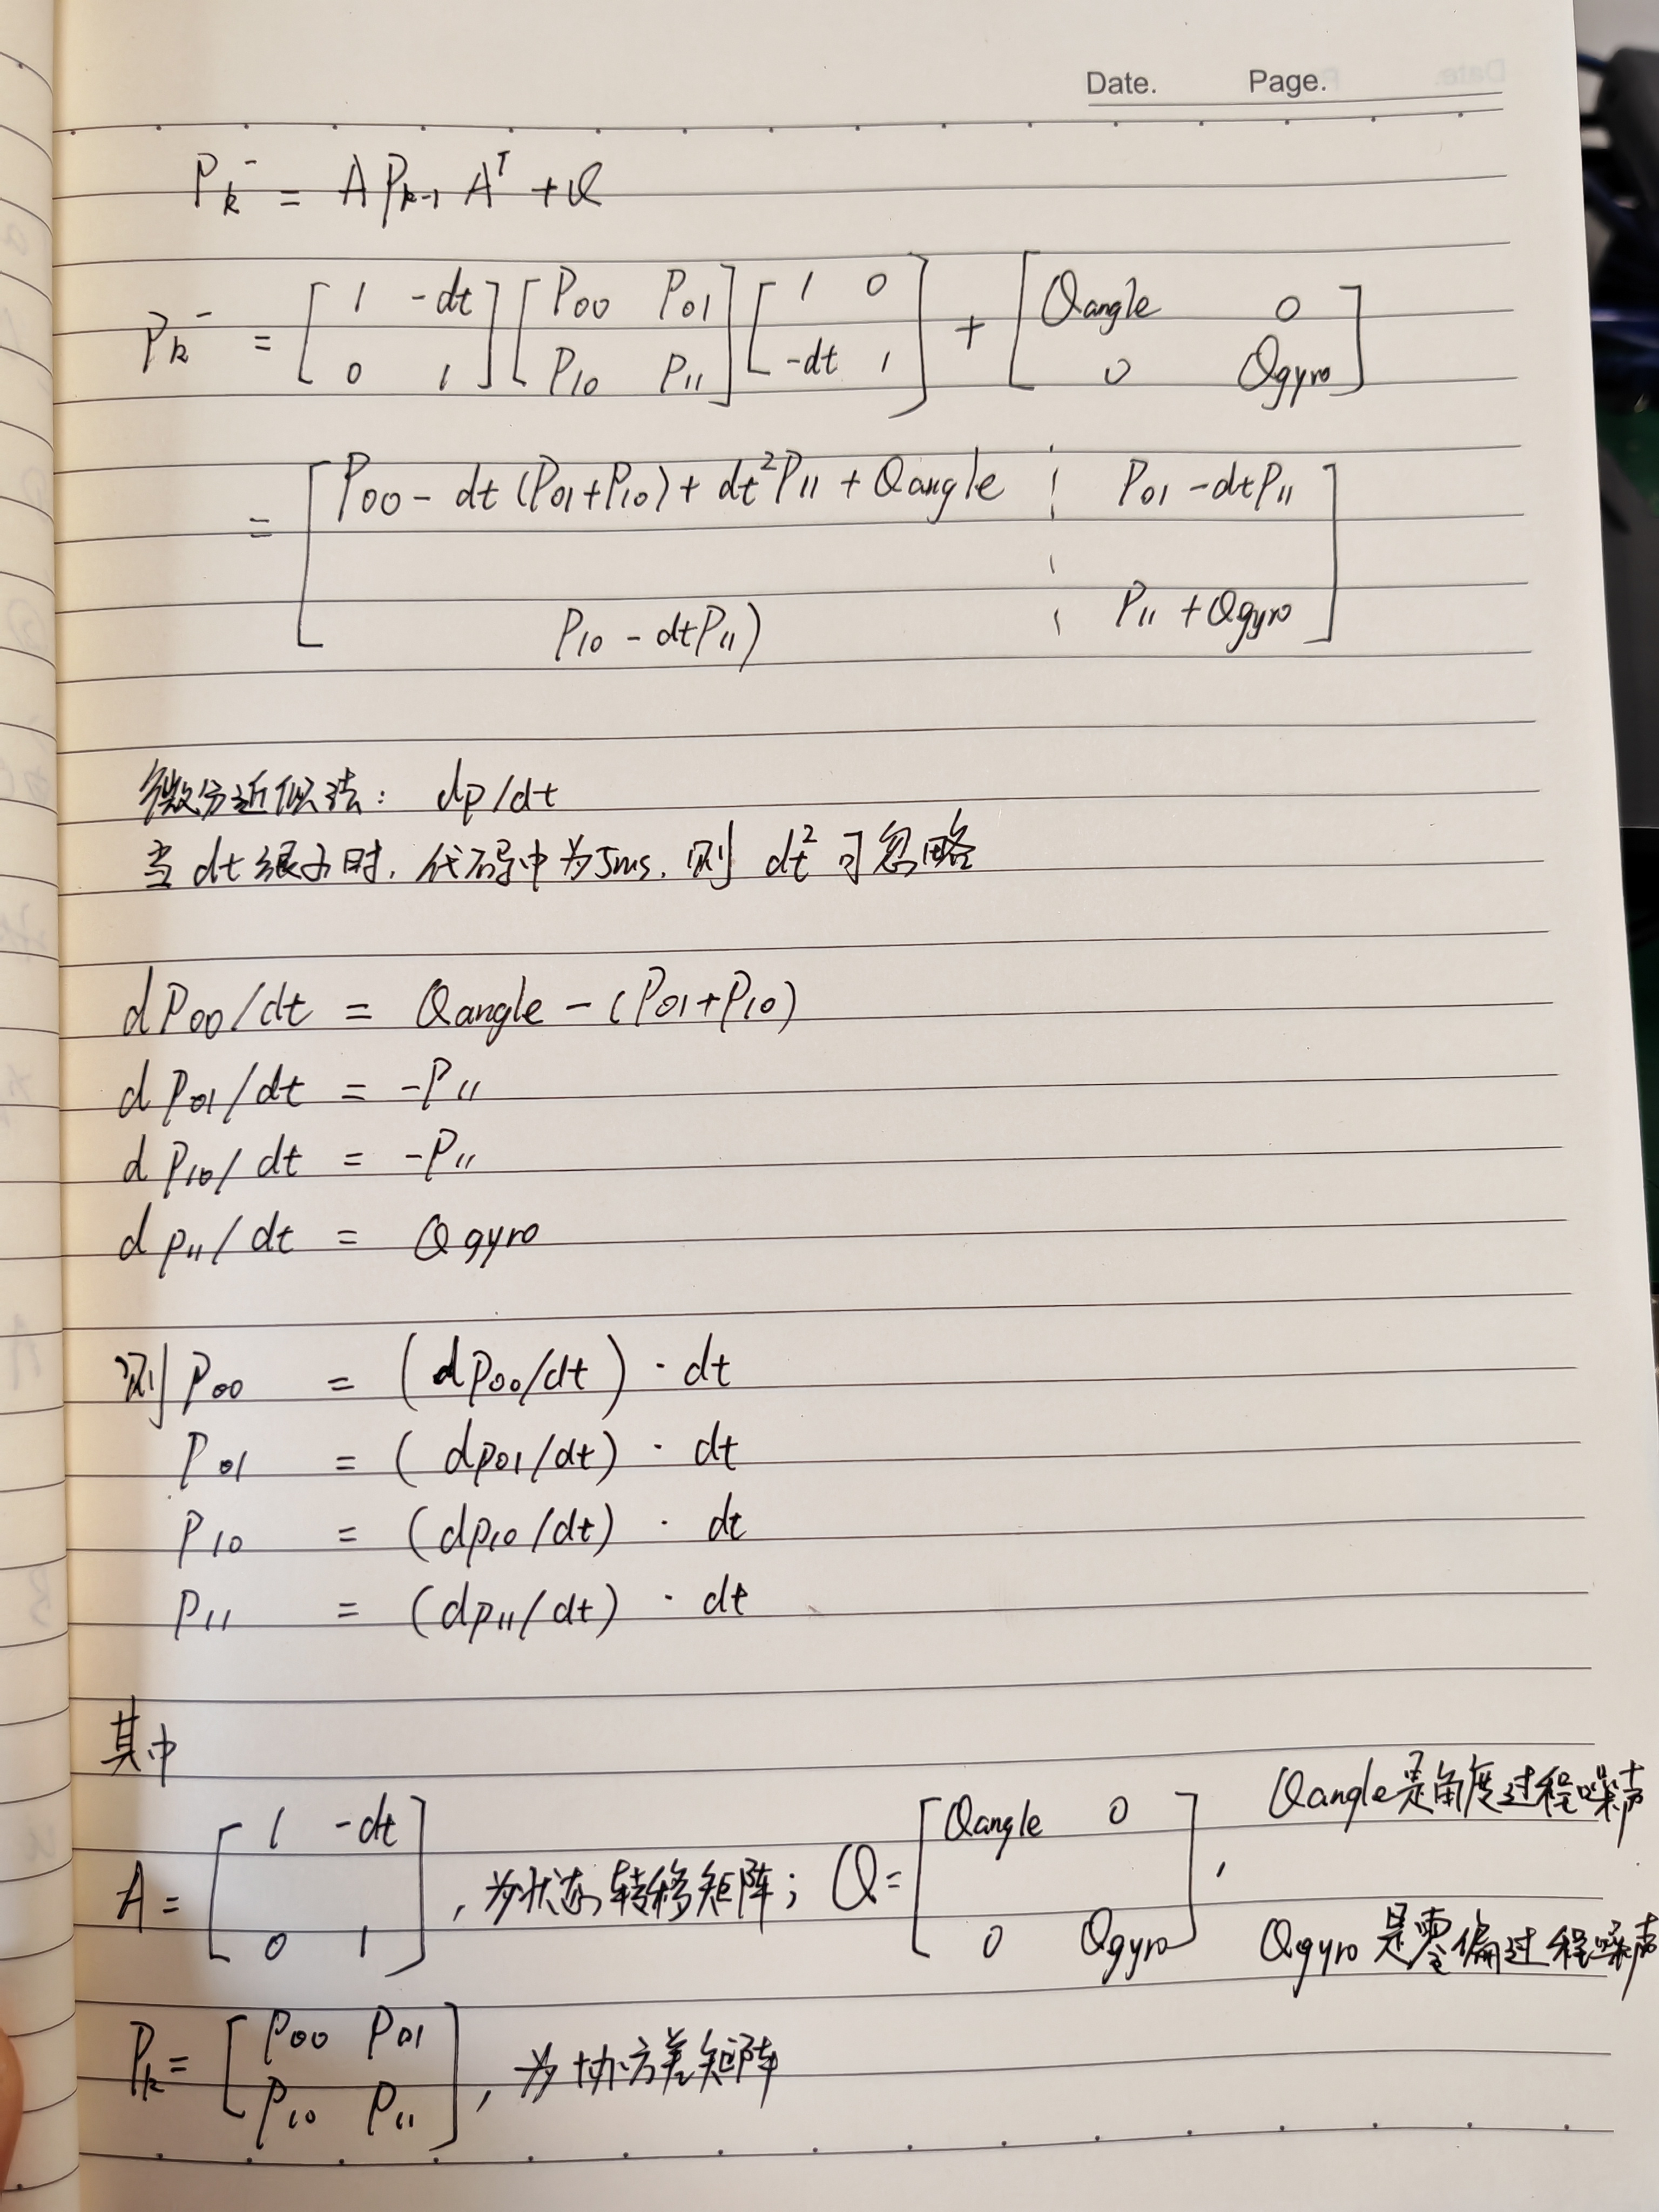 Date. Page.
P_k^- = A P_{k-1} A^T + Q
P_k^- = [1 -dt; 0 1] [P00 P01; P10 P11] [1 0; -dt 1] + [Qangle 0; 0 Qgyro]
= [P00 - dt(P01+P10) + dt²P11 + Qangle ¦ P01 - dtP11;
P10 - dtP11) ¦ P11 + Qgyro]
微分近似法: dp/dt
当 dt 很小时, 代码中为5ms, 则 dt² 可忽略
dP00/dt = Qangle - (P01+P10)
dP01/dt = -P11
dP10/dt = -P11
dP11/dt = Qgyro
则 P00 = (dP00/dt) · dt
P01 = (dP01/dt) · dt
P10 = (dP10/dt) · dt
P11 = (dP11/dt) · dt
其中
A = [1 -dt; 0 1], 为状态转移矩阵; Q = [Qangle 0; 0 Qgyro], Qangle是角度过程噪声
Qgyro是零偏过程噪声
P_k = [P00 P01; P10 P11], 为协方差矩阵